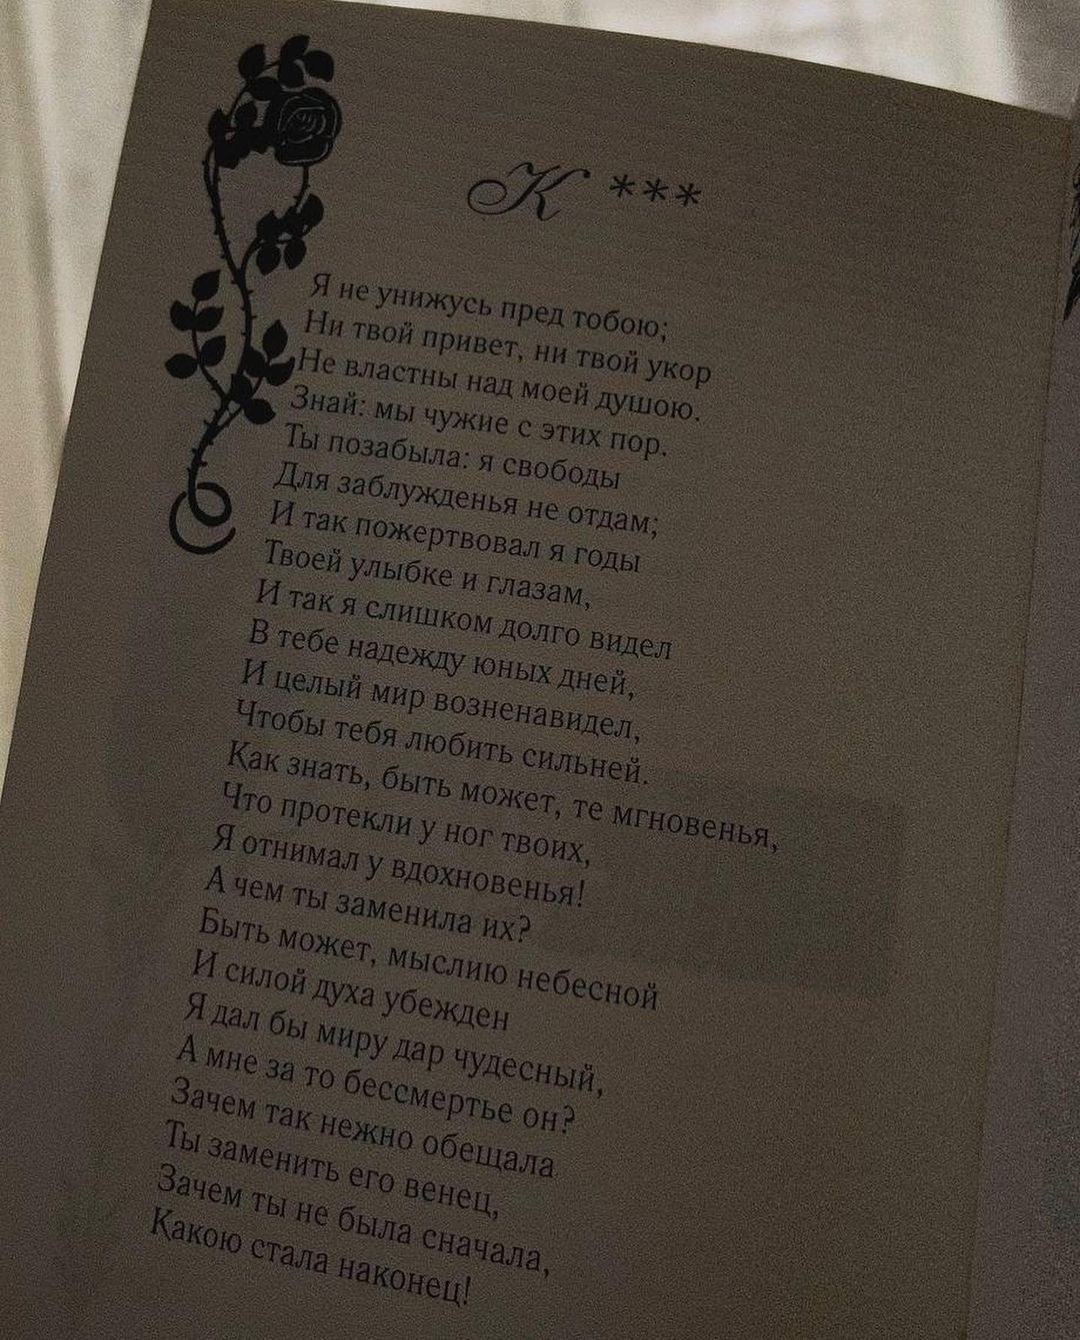 К ***
Я не унижусь пред тобою;
Ни твой привет, ни твой укор
Не властны над моей душою.
Знай: мы чужие с этих пор.
Ты позабыла: я свободы
Для заблужденья не отдам;
И так пожертвовал я годы
Твоей улыбке и глазам,
И так я слишком долго видел
В тебе надежду юных дней,
И целый мир возненавидел,
Чтобы тебя любить сильней.
Как знать, быть может, те мгновенья,
Что протекли у ног твоих,
Я отнимал у вдохновенья!
А чем ты заменила их?
Быть может, мыслию небесной
И силой духа убежден
Я дал бы миру дар чудесный,
А мне за то бессмертье он?
Зачем так нежно обещала
Ты заменить его венец,
Зачем ты не была сначала,
Какою стала наконец!